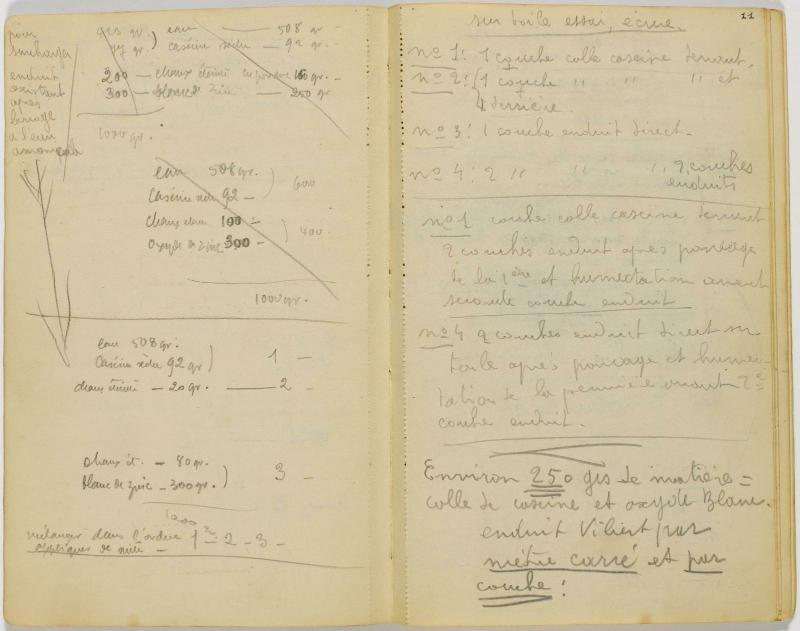 pour
enduit
existant
après
lavage
à l'eau
eau — 508 gr
caséine sèche — 92 gr.
200 — chaux éteinte en poudre
300 — blanc de zinc — 250 gr
1000 gr.
eau 508 gr.
Caséine sèche 92 — 600
chaux éteinte 100 —
oxyde de zinc 300 — 400.
1000 gr.
eau 508 gr.
Caséine sèche 92 gr) 1 —
chaux éteinte — 20 gr. — 2 —
chaux ét. — 80 gr.
blanc de zinc — 300 gr.) 3 —
1000
mélanger dans l'ordre 1 — 2 — 3 —
appliquer de suite —
11
sur toile essai, écrue.
n° 1: 1 couche colle caséine devant.
n° 2: 1 couche " " " et
derrière.
n° 3: 1 couche enduit direct.
n° 4: 2 " " " 2 couches
enduits
n° 1 couche colle caséine devant
2 couches enduit après ponçage
de la 1ère et humectation avant
seconde couche enduit
n° 4 2 couches enduit direct sur
toile après ponçage et humec-
tation de la première avant 2e
couche enduit.
Environ 250 grs de matière =
colle de caséine et oxyde Blanc.
enduit Vibert par
mètre carré et par
couche!